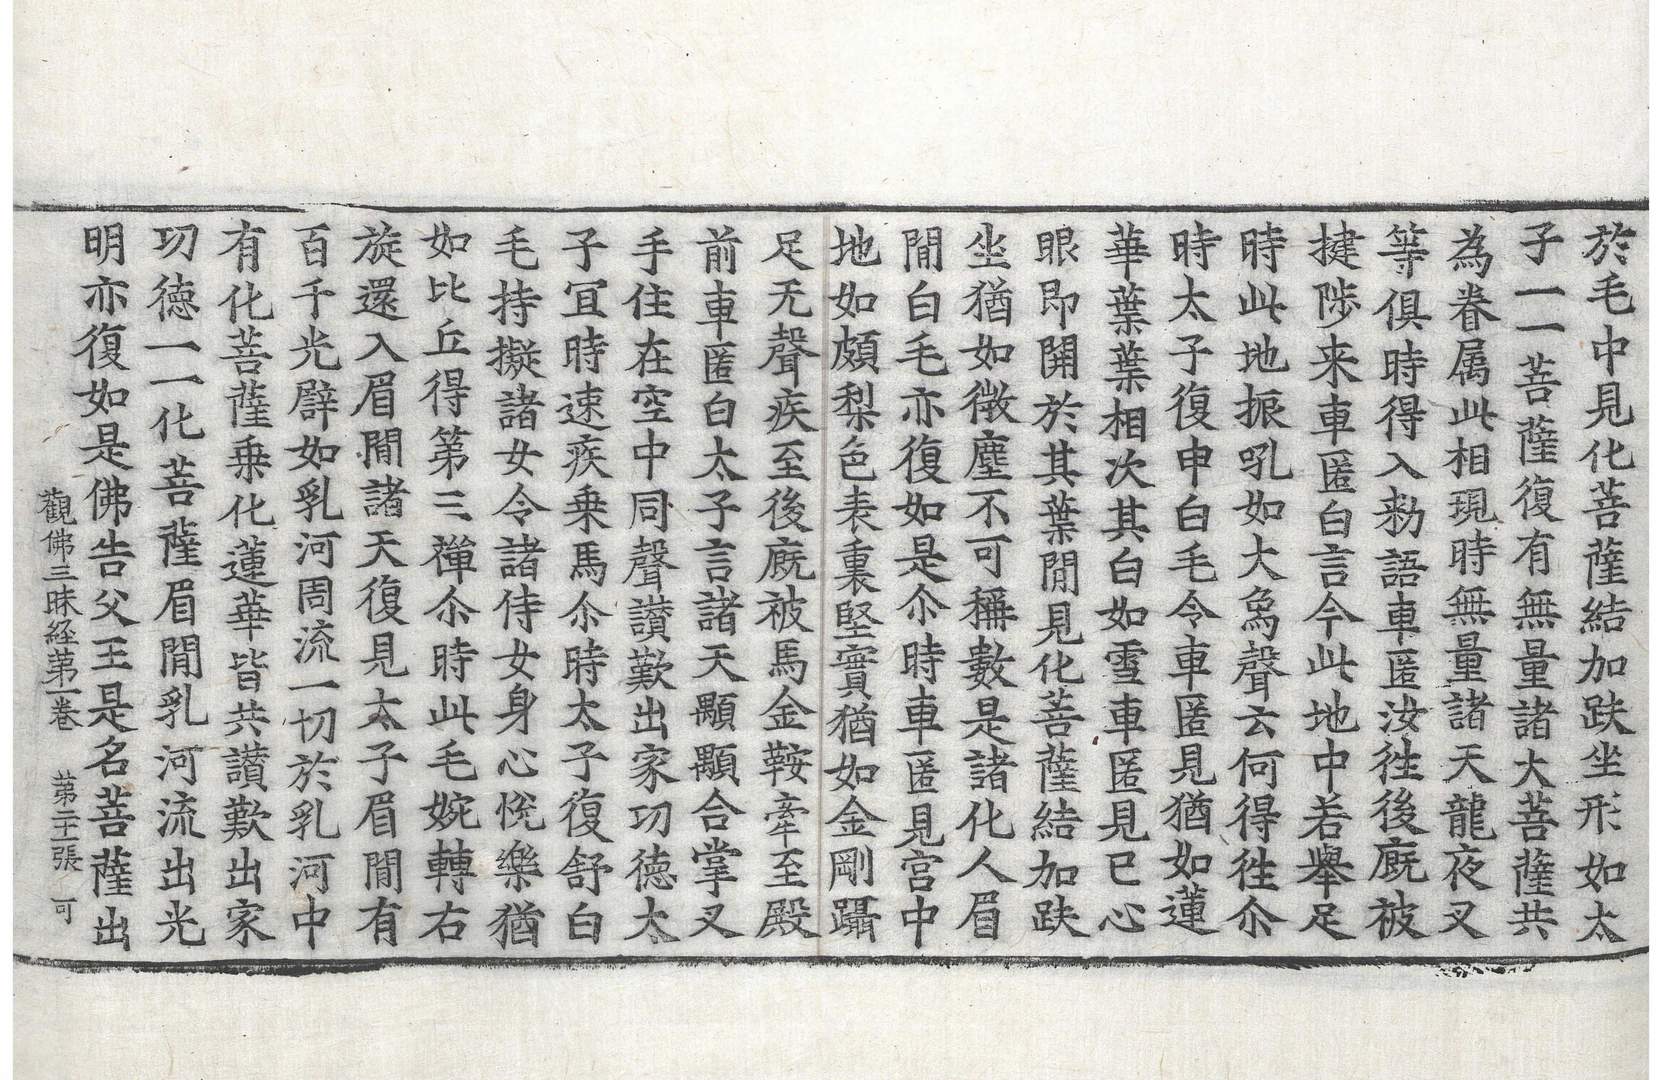 於毛中見化菩薩結加趺坐形如太
子一一菩薩復有無量諸大菩薩共
為眷属此相現時無量諸天龍夜叉
等俱時得入勑語車匿汝徃後廐被
揵陟来車匿白言今此地中若舉足
時此地振吼如大烏聲云何得徃尒
時太子復申白毛令車匿見猶如蓮
華葉葉相次其白如雪車匿見已心
眼即開於其葉間見化菩薩結加趺
坐猶如微塵不可稱數是諸化人眉
間白毛亦復如是尒時車匿見宫中
地如頗梨色表裏堅實猶如金剛躡
足无聲疾至後廐被馬金鞍牽至殿
前車匿白太子言諸天顒顒合掌叉
手住在空中同聲讃歎出家功德太
子冝時速疾乗馬尒時太子復舒白
毛持擬諸女令諸侍女身心悅樂猶
如比丘得第三禪尒時此毛婉轉右
旋還入眉間諸天復見太子眉間有
百千光譬如乳河周流一切於乳河中
有化菩薩乗化蓮華皆共讃歎出家
功德一一化菩薩眉間乳河流出光
明亦復如是佛告父王是名菩薩出
觀佛三昧経第一卷 苐二十張 可